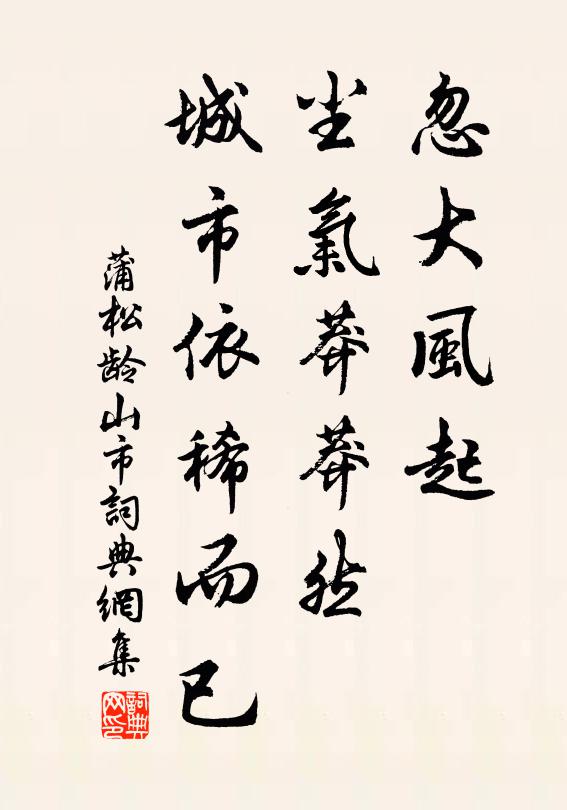 忽大風起
尘氣莽莽然
城市依稀而已
蒲松龄山市詞典網集
詞典网印